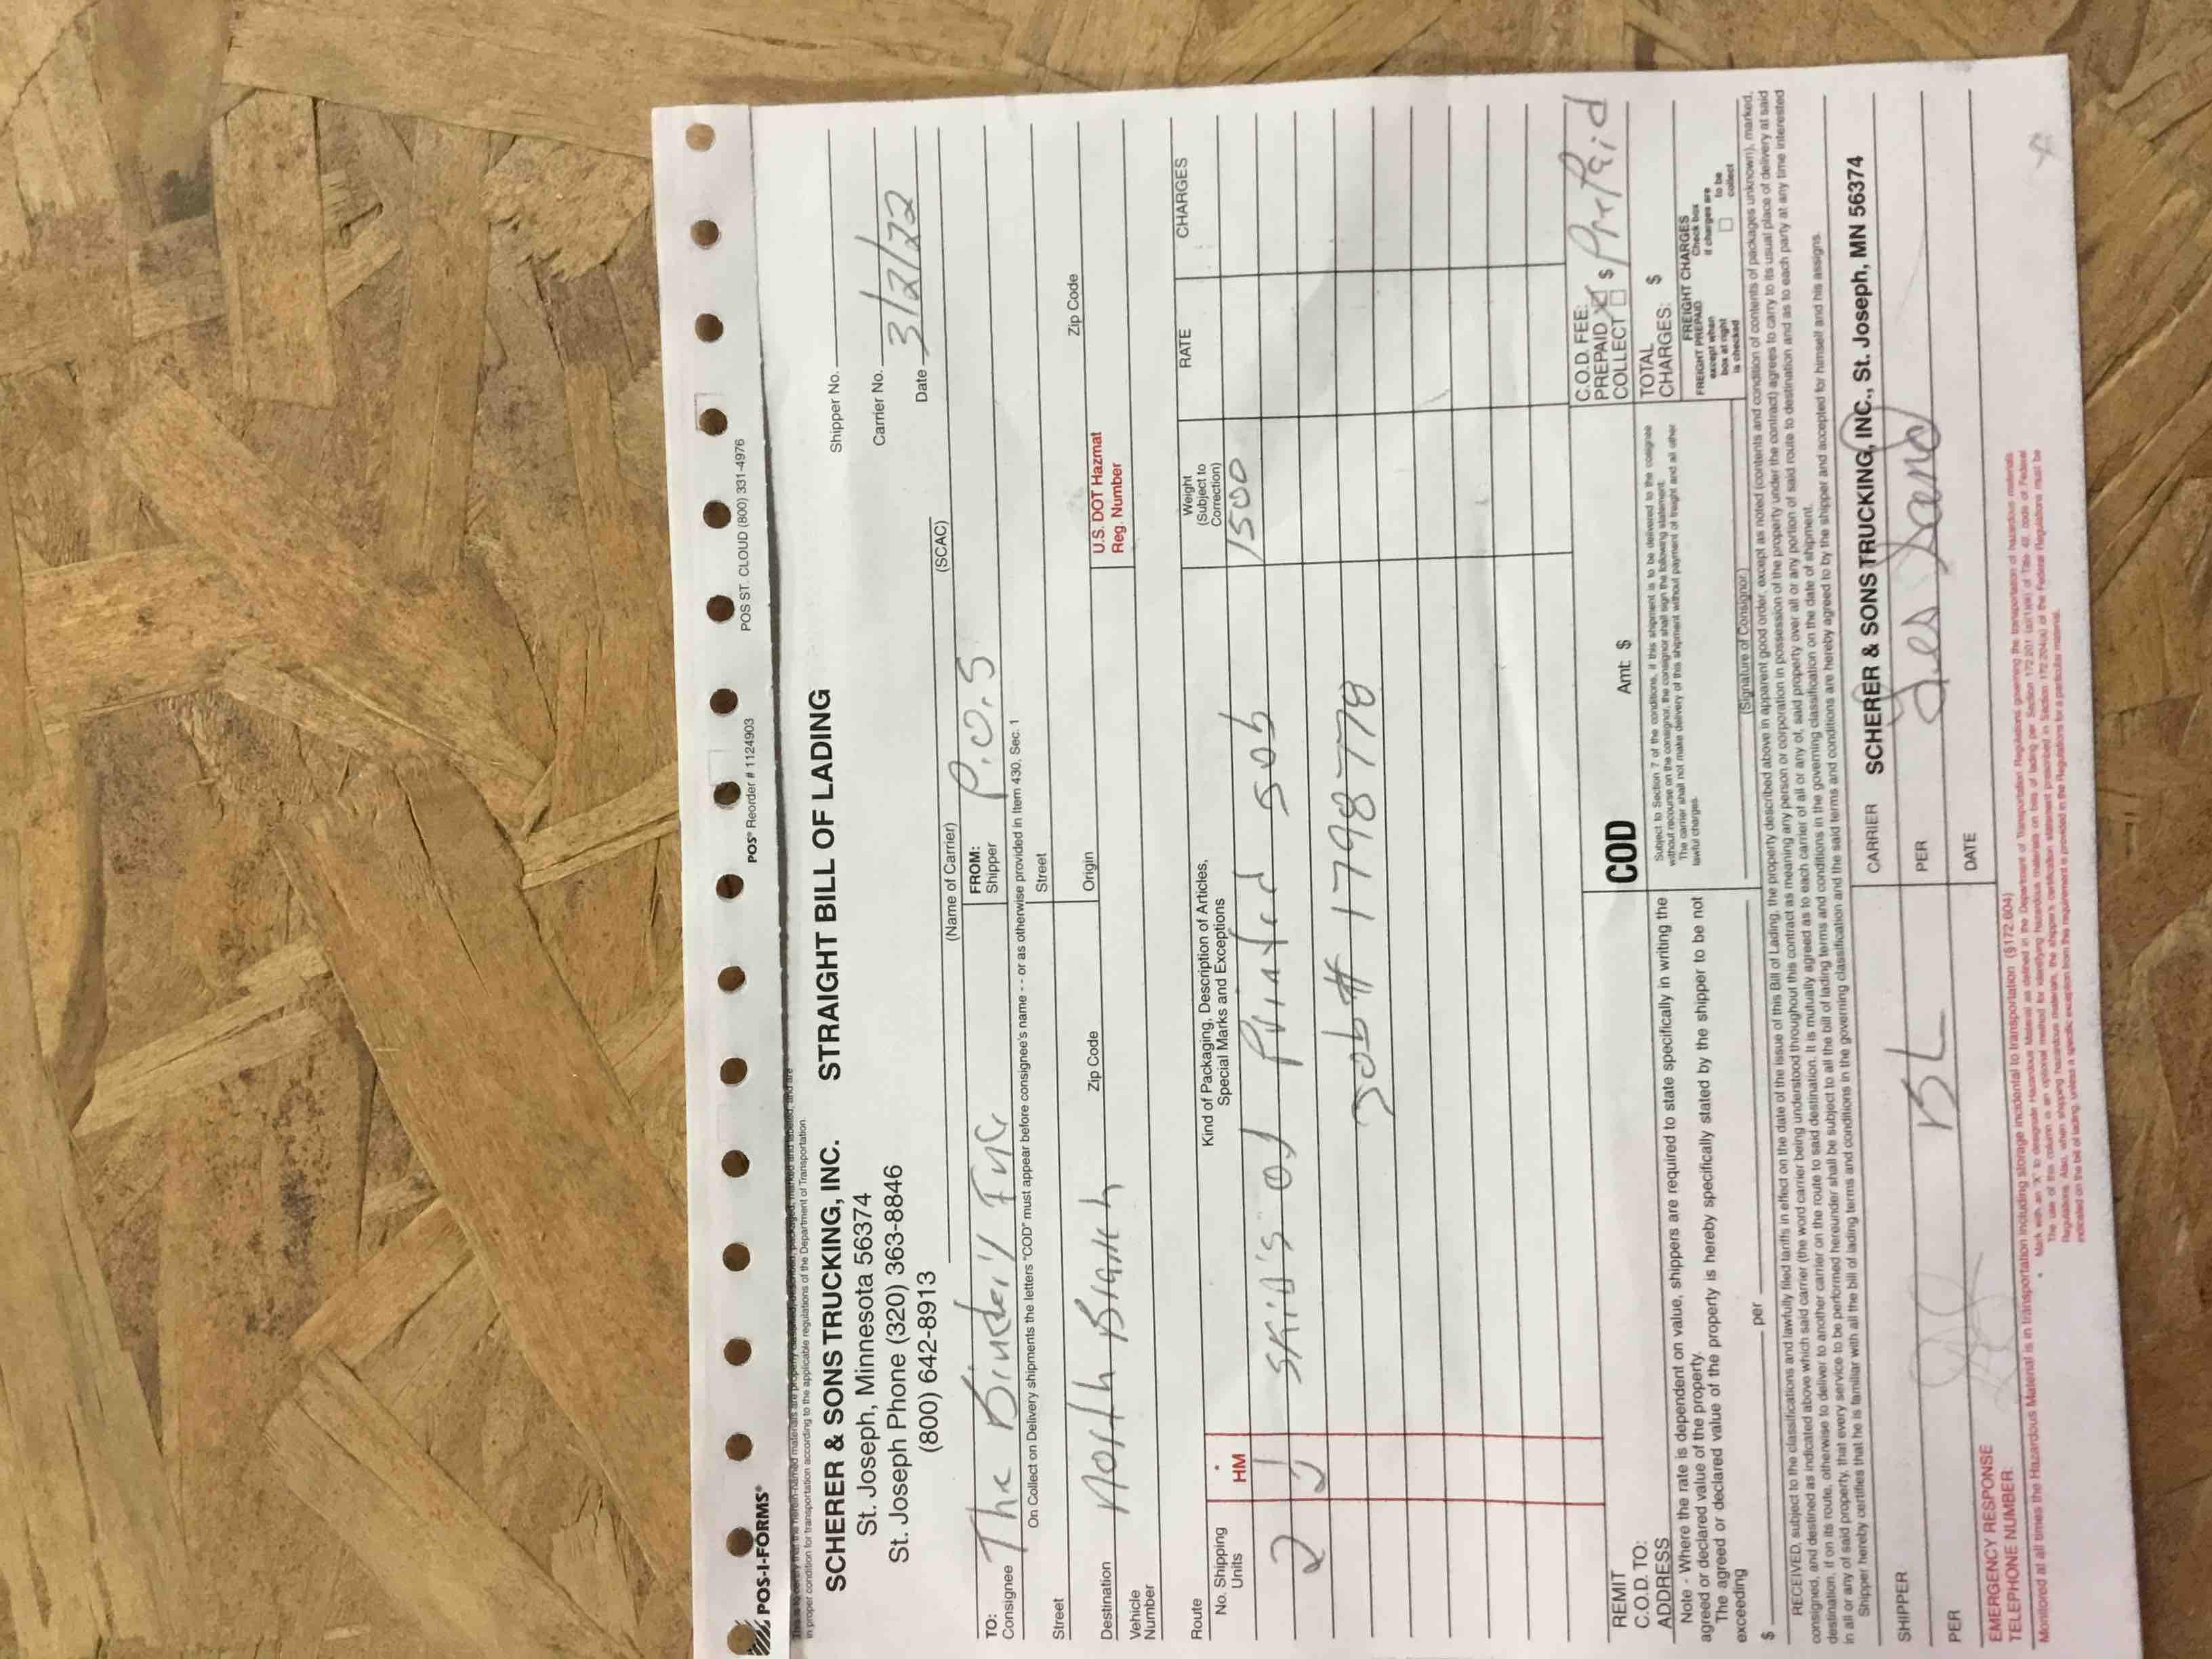 POS-I-FORMS®
POS® Reorder # 1124903
POS ST. CLOUD (800) 331-4976
This is to certify that the herein-named materials are properly classified, described, packaged, marked and labeled, and are
in proper condition for transportation according to the applicable regulations of the Department of Transportation.
SCHERER & SONS TRUCKING, INC. STRAIGHT BILL OF LADING
St. Joseph, Minnesota 56374
St. Joseph Phone (320) 363-8846
(800) 642-8913
Shipper No.
Carrier No.
Date 3/2/22
(Name of Carrier) (SCAC)
TO:
Consignee The Bindery Inc
FROM:
Shipper P.O.S
On Collect on Delivery shipments the letters "COD" must appear before consignee's name - - or as otherwise provided in Item 430, Sec. 1
Street
Street
Destination North Branch Zip Code
Origin Zip Code
Vehicle
Number
U.S. DOT Hazmat
Reg. Number
Route
No. Shipping
Units
*
HM
Kind of Packaging, Description of Articles,
Special Marks and Exceptions
Weight
(Subject to
Correction)
RATE
CHARGES
2 Skid's of Printed Job 1500
Job# 1798778
REMIT
C.O.D. TO:
ADDRESS
COD Amt: $
C.O.D. FEE:
PREPAID
COLLECT $ PrePaid
Note - Where the rate is dependent on value, shippers are required to state specifically in writing the
agreed or declared value of the property.
The agreed or declared value of the property is hereby specifically stated by the shipper to be not
exceeding
$ per
Subject to Section 7 of the conditions, if this shipment is to be delivered to the consignee
without recourse on the consignor, the consignor shall sign the following statement:
The carrier shall not make delivery of this shipment without payment of freight and all other
lawful charges.
(Signature of Consignor)
TOTAL
CHARGES: $
FREIGHT CHARGES
FREIGHT PREPAID
except when
box at right
is checked
Check box
if charges are
to be
collect
RECEIVED, subject to the classifications and lawfully filed tariffs in effect on the date of the issue of this Bill of Lading, the property described above in apparent good order, except as noted (contents and condition of contents of packages unknown), marked,
consigned, and destined as indicated above which said carrier (the word carrier being understood throughout this contract as meaning any person or corporation in possession of the property under the contract) agrees to carry to its usual place of delivery at said
destination, if on its route, otherwise to deliver to another carrier on the route to said destination. It is mutually agreed as to each carrier of all or any of, said property over all or any portion of said route to destination and as to each party at any time interested
in all or any of said property, that every service to be performed hereunder shall be subject to all the bill of lading terms and conditions in the governing classification on the date of shipment.
Shipper hereby certifies that he is familiar with all the bill of lading terms and conditions in the governing classification and the said terms and conditions are hereby agreed to by the shipper and accepted for himself and his assigns.
SHIPPER
CARRIER SCHERER & SONS TRUCKING, INC., St. Joseph, MN 56374
PER BL
PER
DATE
EMERGENCY RESPONSE
TELEPHONE NUMBER:
Monitored at all times the Hazardous Material is in transportation including storage incidental to transportation (§172.604)
* Mark with an "X" to designate Hazardous Material as defined in the Department of Transportation Regulations governing the transportation of hazardous materials.
The use of this column is an optional method for identifying hazardous materials on bills of lading per Section 172.201 (a)(1)(iii) of Title 49, code of Federal
Regulations. Also, when shipping hazardous materials, the shipper's certification statement prescribed in Section 172.204(a) of the Federal Regulations must be
indicated on the bill of lading, unless a specific exception from this requirement is provided in the Regulations for a particular material.